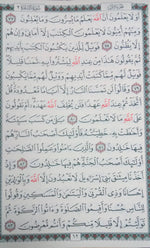 أَوَلَا يَعْلَمُونَ أَنَّ ٱللَّهَ يَعْلَمُ مَا يُسِرُّونَ وَمَا يُعْلِنُونَ ٧٧
وَمِنْهُمْ أُمِّيُّونَ لَا يَعْلَمُونَ ٱلْكِتَٰبَ إِلَّآ أَمَانِىَّ وَإِنْ هُمْ
إِلَّا يَظُنُّونَ ٧٨ فَوَيْلٌ لِّلَّذِينَ يَكْتُبُونَ ٱلْكِتَٰبَ بِأَيْدِيهِمْ
ثُمَّ يَقُولُونَ هَٰذَا مِنْ عِندِ ٱللَّهِ لِيَشْتَرُوا۟ بِهِۦ ثَمَنًا قَلِيلًا
فَوَيْلٌ لَّهُم مِّمَّا كَتَبَتْ أَيْدِيهِمْ وَوَيْلٌ لَّهُم مِّمَّا يَكْسِبُونَ
٧٩ وَقَالُوا۟ لَن تَمَسَّنَا ٱلنَّارُ إِلَّآ أَيَّامًا مَّعْدُودَةً قُلْ أَتَّخَذْتُمْ
عِندَ ٱللَّهِ عَهْدًا فَلَن يُخْلِفَ ٱللَّهُ عَهْدَهُۥٓ أَمْ تَقُولُونَ
عَلَى ٱللَّهِ مَا لَا تَعْلَمُونَ ٨٠ بَلَىٰ مَن كَسَبَ سَيِّئَةً
وَأَحَٰطَتْ بِهِۦ خَطِيٓـَٔتُهُۥ فَأُو۟لَٰٓئِكَ أَصْحَٰبُ ٱلنَّارِ هُمْ
فِيهَا خَٰلِدُونَ ٨١ وَٱلَّذِينَ ءَامَنُوا۟ وَعَمِلُوا۟ ٱلصَّٰلِحَٰتِ
أُو۟لَٰٓئِكَ أَصْحَٰبُ ٱلْجَنَّةِ هُمْ فِيهَا خَٰلِدُونَ ٨٢ وَإِذْ أَخَذْنَا
مِيثَٰقَ بَنِىٓ إِسْرَٰٓءِيلَ لَا تَعْبُدُونَ إِلَّا ٱللَّهَ وَبِٱلْوَٰلِدَيْنِ
إِحْسَانًا وَذِى ٱلْقُرْبَىٰ وَٱلْيَتَٰمَىٰ وَٱلْمَسَٰكِينِ وَقُولُوا۟
لِلنَّاسِ حُسْنًا وَأَقِيمُوا۟ ٱلصَّلَوٰةَ وَءَاتُوا۟ ٱلزَّكَوٰةَ ثُمَّ
تَوَلَّيْتُمْ إِلَّا قَلِيلًا مِّنكُمْ وَأَنتُم مُّعْرِضُونَ ٨٣
١٢